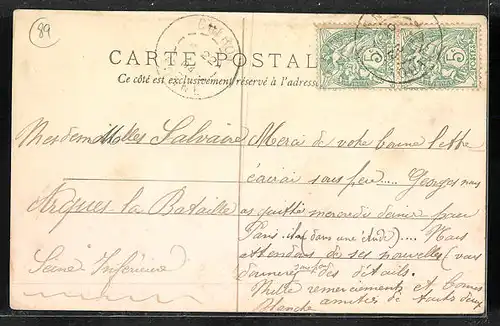 89
CARTE POSTAL
Ce côté est exclusivement réservé à l'adresse
5 5
POSTES
Mesdemoiselles Salvaire
Arques la Bataille
Seine Inférieure
Merci de votre bonne lettre
écrirai sous peu.... Georges nous
as quitté mercredi dernier pour
Paris (dans une étude).... Nous
attendons de ses nouvelles
donnerai sous peu des détails.
Mille remerciements et bonnes
amitiés de toutes deux
Blanche